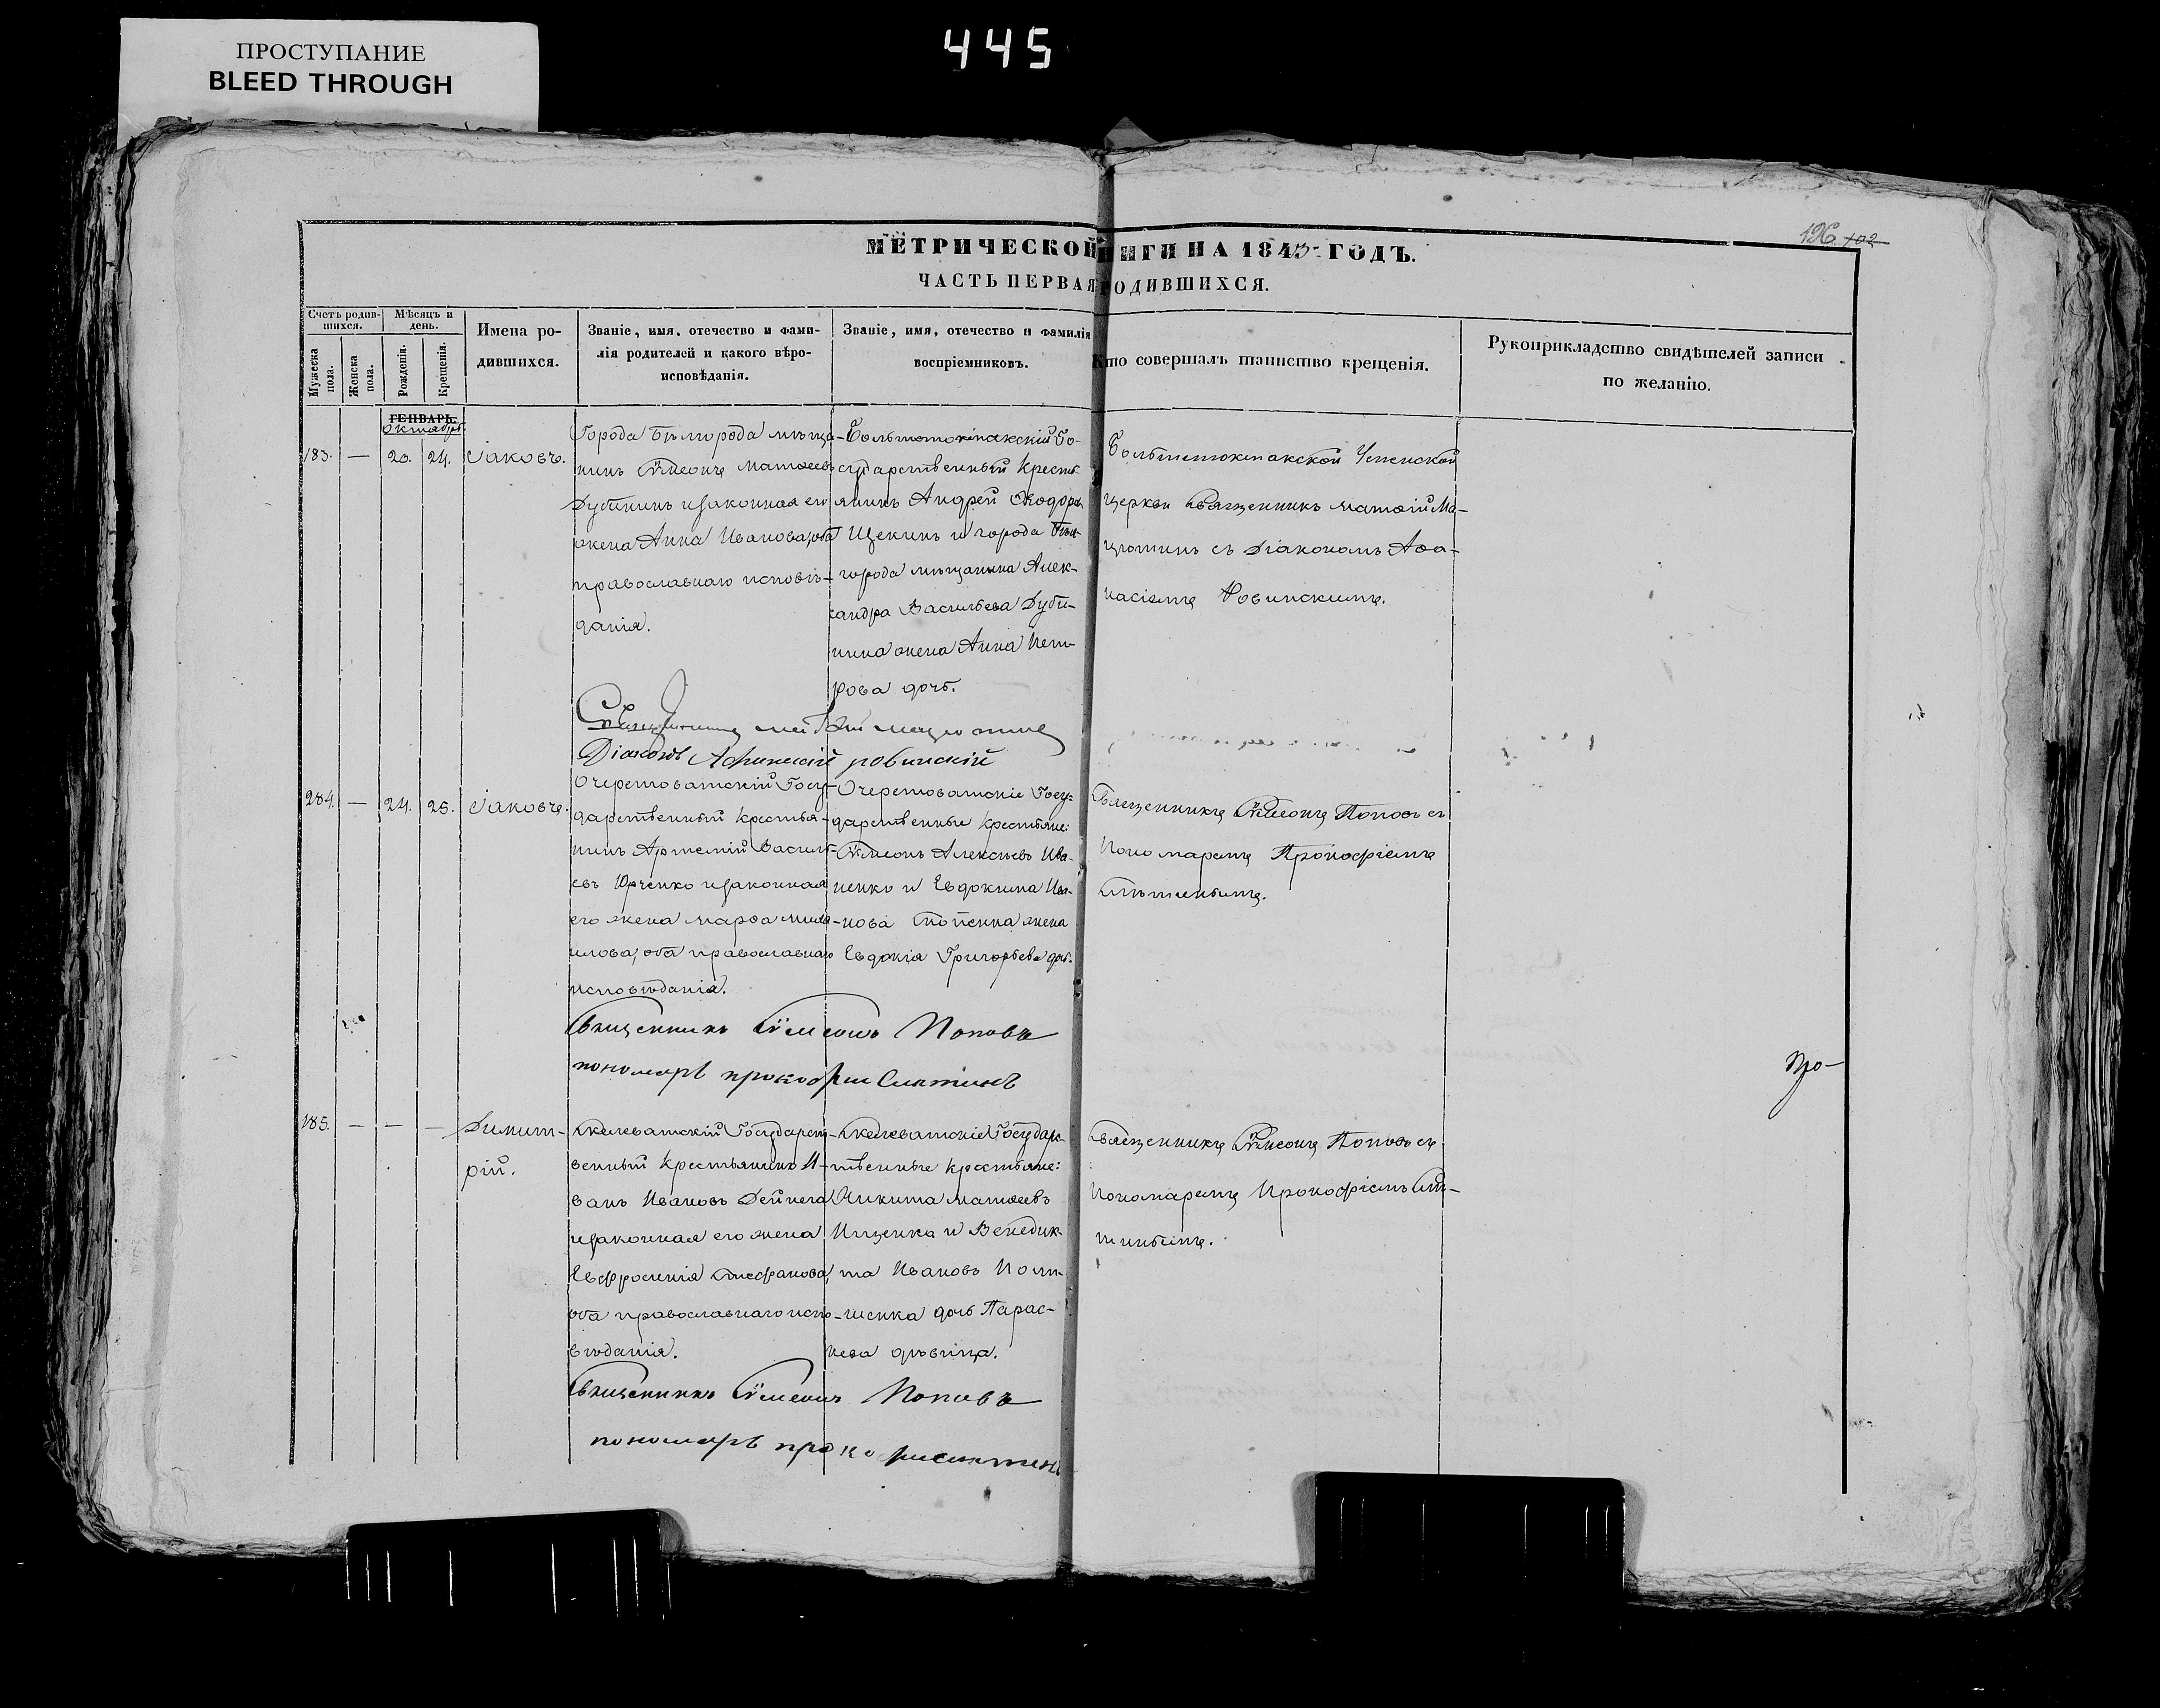 ПРОСТУПАНИЕ
BLEED THROUGH
445
126. 102
МЕТРИЧЕСКОЙ НИГИ НА 1845 ГОДЪ.
ЧАСТЬ ПЕРВАЯ РОДИВШИХСЯ.
Счетъ родив-
шихся.
Мужеска пола.
Женска пола.
Мѣсяцъ и
день.
Рожденія.
Крещенія.
Имена ро-
дившихся.
Званіе, имя, отечество и фами-
лія родителей и какого вѣро-
исповѣданія.
Званіе, имя, отечество и фамилія
воспріемниковъ.
Кто совершалъ таинство крещенія.
Рукоприкладство свидѣтелей записи
по желанію.
ГЕНВАРЬ.
Октябрь
183. — 20. 24. Іаковъ.
Города Бѣлгорода мѣща-
нинъ Сѷмеонъ Матѳеевъ
Дубининъ изаконная его
жена Анна Иванова, оба
православнаго исповѣ-
данія.
Го-
сударственный Кресть-
янинъ Андрей Ѳеодоровъ
Щекинъ и города Бѣл-
города мѣщанина Алек-
сандра Васильева Дуби-
нина жена Анна Пет-
рова дочь.
Успенской
церкви Священникъ Матѳій Ма-
цютинъ съ Діакономъ Аѳа-
насіемъ Ровинскимъ.
Священникъ Матѳій Мацютинъ
Діаконъ Афинасій ровинскій
284. — 24. 25. Іаковъ.
Очеретоватскій Госу-
дарственный Крестья-
нинъ Артемій Василь-
евъ Юрченко изаконная
его жена Марѳа
оба православнаго
исповѣданія.
Очеретоватскіе Госу-
дарственные Крестьяне:
Сѷмеонъ Алексѣевъ Ива-
ненко и Евдокима Ива-
нова жена
Евдокія Григорьева дочь.
Священникъ Сѷмеонъ Поповъ съ
Пономаремъ Прокофіемъ
Священникъ Сѷмеонъ Поповъ
пономарь прокофи
185. — — — Димит-
рій.
Скелеватскій Государст-
венный Крестьянинъ И-
ванъ Ивановъ Дейнега
изаконная его жена
Евфросинія Стефанова,
оба православнаго испо-
вѣданія.
Скелеватскіе Государ-
ственные Крестьяне:
Никита Матѳеевъ
Ищенка и Венедик-
та Иванова
дочь Парас-
кева дѣвица.
Священникъ Сѷмеонъ Поповъ съ
Пономаремъ Прокофіемъ
Священникъ Сѷмеонъ Поповъ
пономарь прокофи
Про-